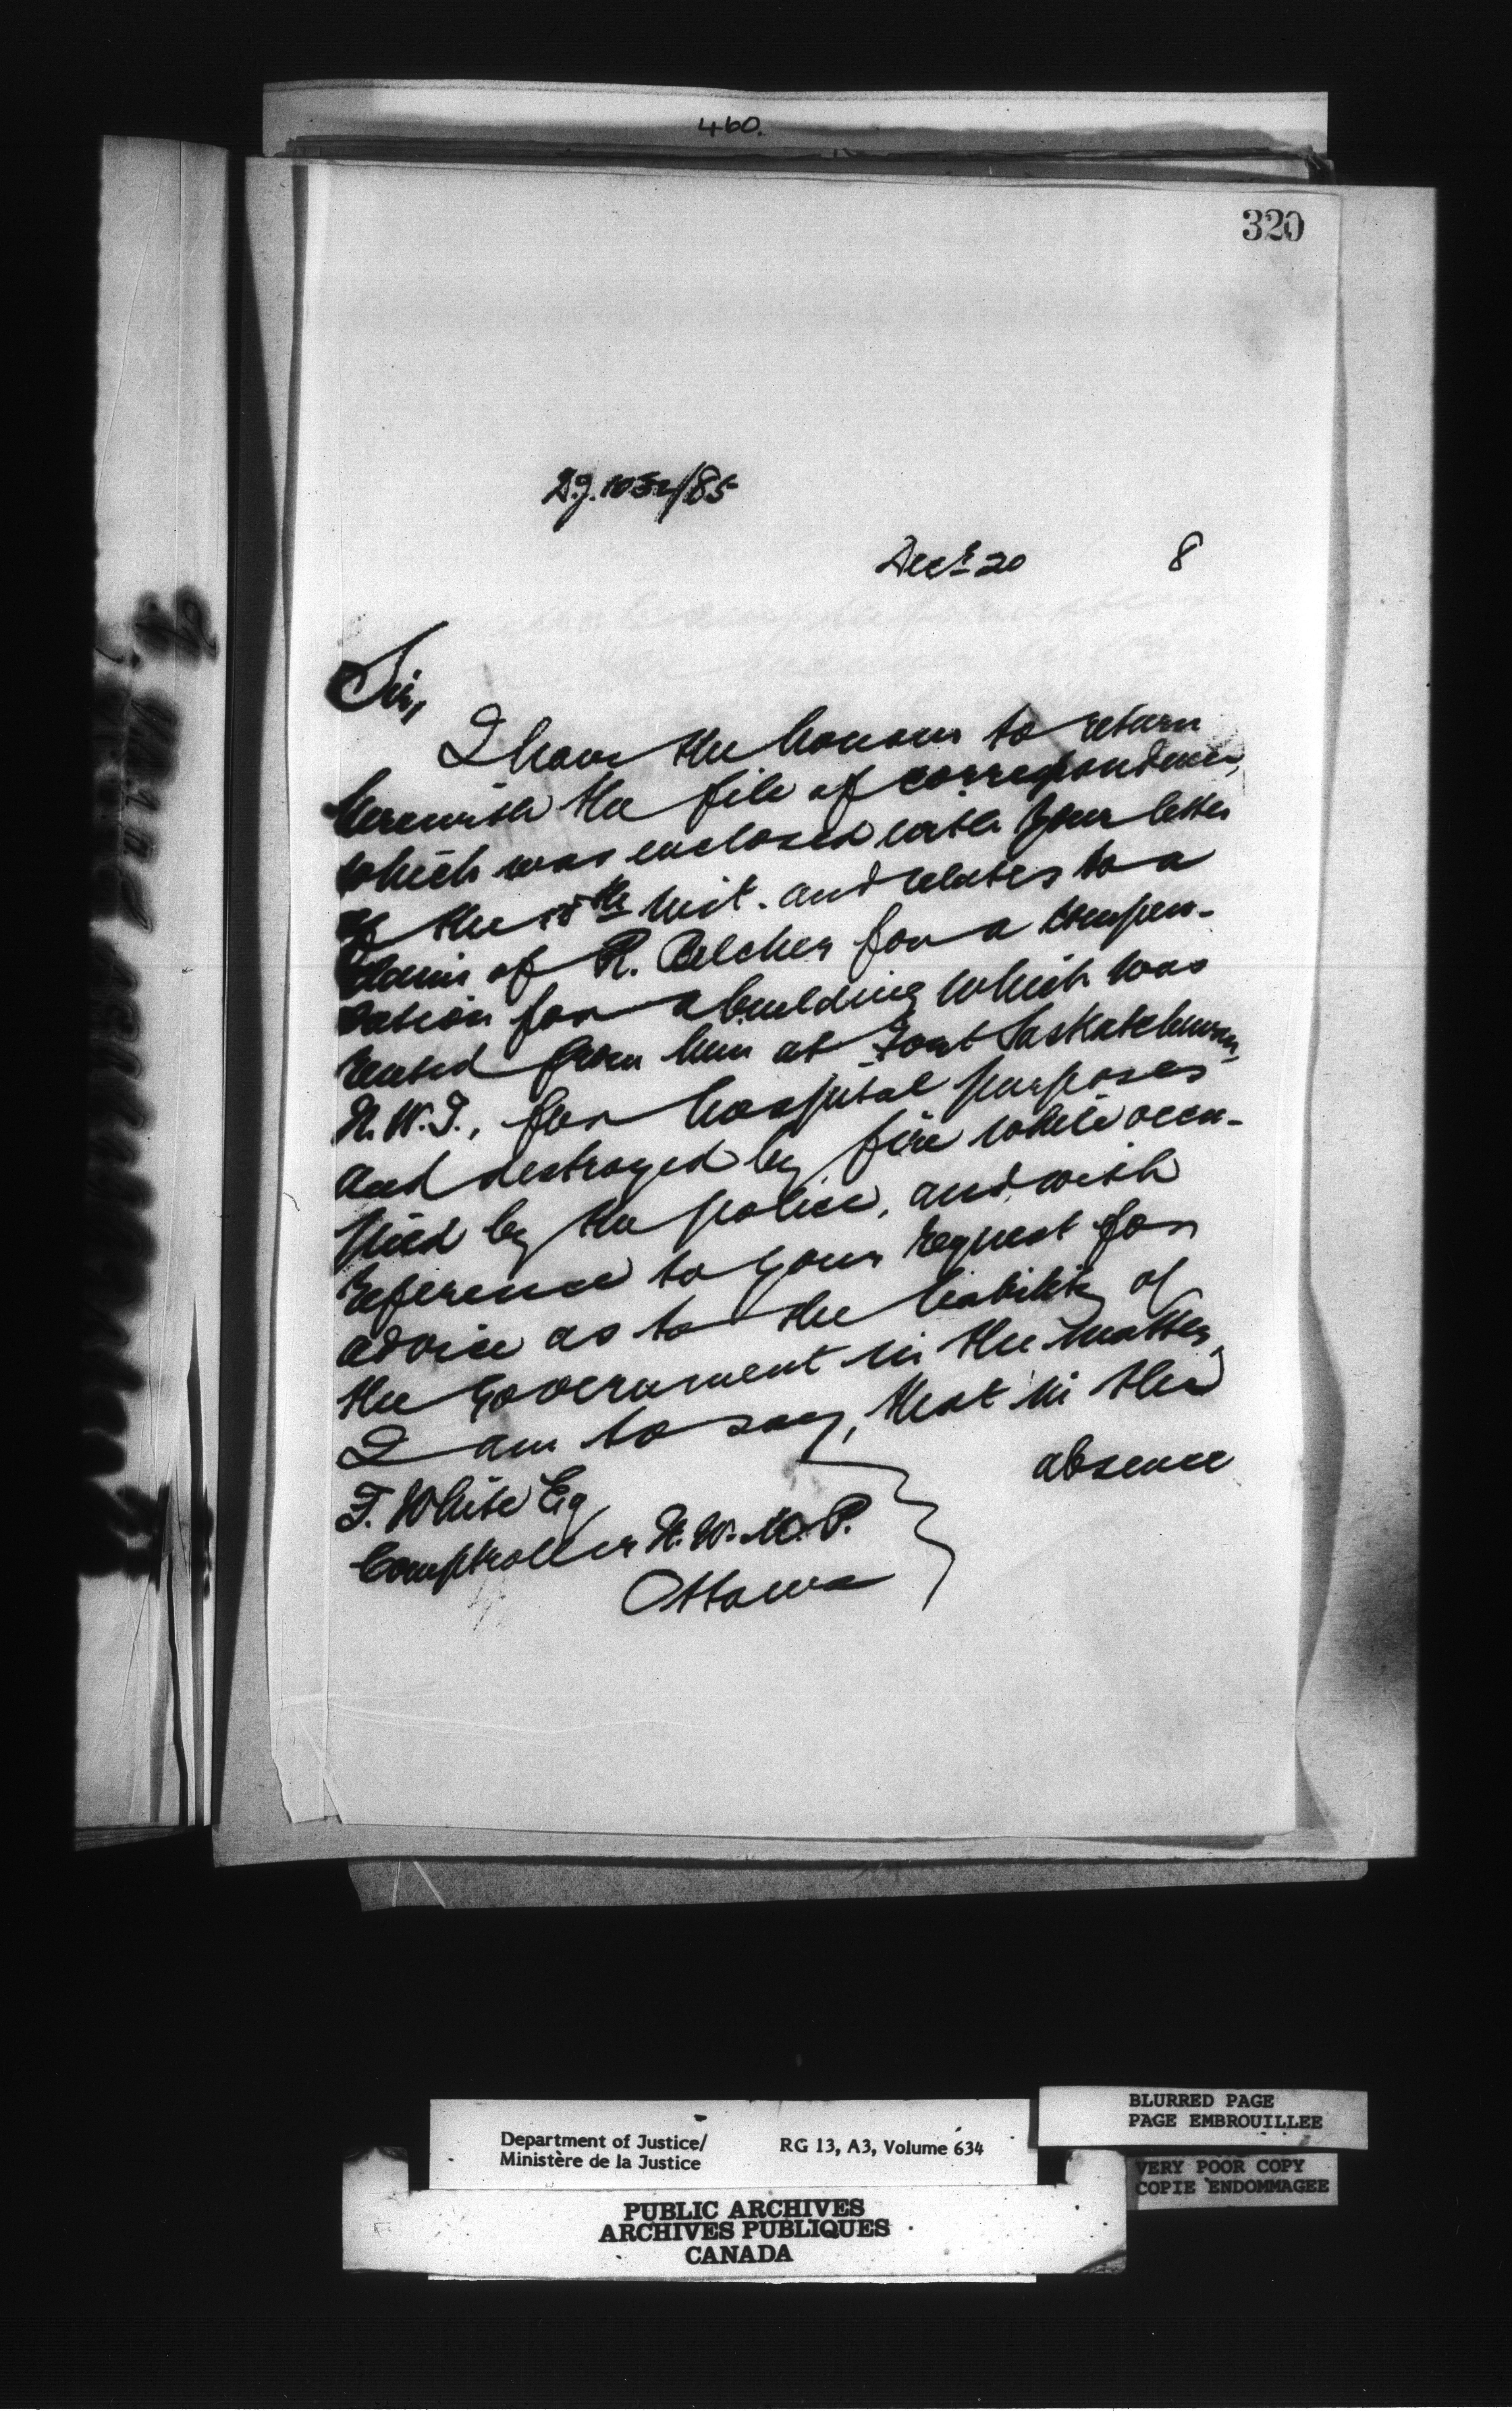 460.
320
D.J. 1052/85
Decr 20 8
Sir,
I have the honour to return
herewith the file of correspondence,
which was enclosed with your letter
of the 18th inst. and relates to a
claim of R. Belcher for a compen-
sation for a building which was
rented from him at Fort Saskatchewan,
N.W.T., for hospital purposes
and destroyed by fire while occu-
pied by the police, and with
reference to your request for
advice as to the liability of
the Government in the matter,
I am to say, that in the
absence
F. White Esq
Comptroller N.W.M.P.
Ottawa
BLURRED PAGE
PAGE EMBROUILLEE
Department of Justice/ RG 13, A3, Volume 634
Ministère de la Justice
VERY POOR COPY
COPIE ENDOMMAGEE
PUBLIC ARCHIVES
ARCHIVES PUBLIQUES
CANADA